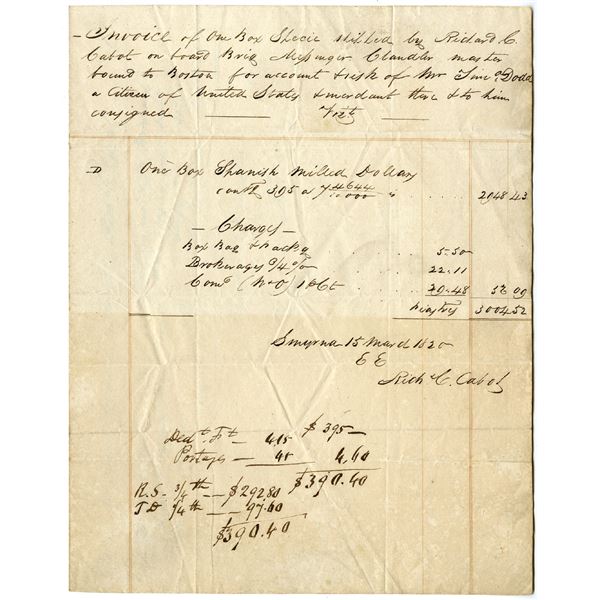 Invoice of One Box Specie shipped by Richard C.
Cabot on board Brig Messenger Chandler master
bound to Boston for account & risk of Mr Timo. Dodd
a Citizen of United States & merchant there & to him
consigned Vizt
D One Box Spanish Milled Dollars
contg 395 a 7 4644/10000 2948 43
— Charges —
Box Bag & Packg 5.50
Brokerages 3/4 o/o 22.11
Comn 1 P Ct 29.48 57 09
Piastres 3005 52
Smyrna 15 March 1820
E E
Richd C. Cabot
$ 395 —
Dedt. Ft — 4.15
Postages — 45 4,60
$390.40
R.S. 3/4 th — $292.80
TD 1/4 th — 97.60
$390.40